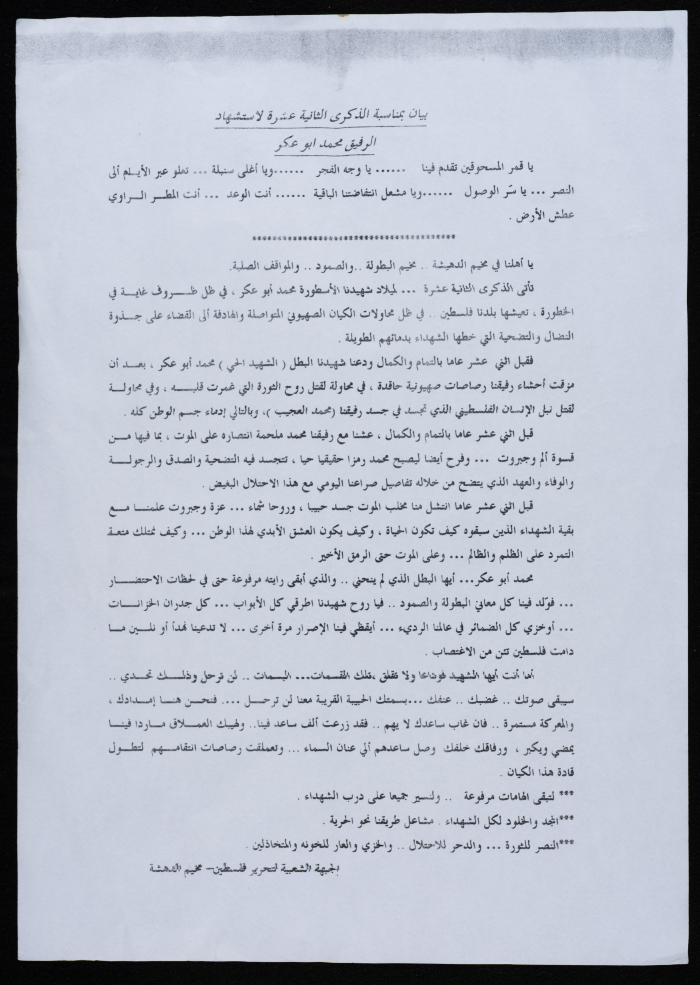 بيان بمناسبة الذكرى الثانية عشرة لاستشهاد
الرفيق محمد ابو عكر
يا قمر المسحوقين تقدم فينا ...... يا وجه الفجر ......ويا أغلى سنبلة ... تعلو عبر الأيـلم ألى
النصر ... يا سّر الوصول ......ويا مشعل انتفاضتنا الباقية ...... أنت الوعد ... أنت المطـر الـراوي
عطش الأرض .
****************************************
يا أهلنا في مخيم الدهيشة .. مخيم البطولة ..والصمود .. والمواقف الصلبة.
تأتى الذكرى الثانية عشرة ... لميلاد شهيدنا الأسطورة محمد أبو عكر ، في ظل ظـروف غايـة في
الخطورة ، تعيشها بلدنا فلسطين .. في ظل محاولات الكيان الصهيوني المتواصلة والهادفة ألى القضاء على جـذوة
النضال والتضحية التي خطها الشهداء بدمائهم الطويلة .
فقبل اثني عشر عاما بالتمام والكمال ودعنا شهيدنا البطل ( الشهيد الحي ) محمد أبو عكر ، بعـد أن
مزقت أحشاء رفيقنا رصاصات صهيونية حاقدة ، في محاولة لقتل روح الثورة التي غمرت قلبـه ، وفي محاولـة
لقتل نبل الإنسان الفلسطيني الذي تجسد في جسد رفيقنا (محمد العجيب )، وبالتالي إدماء جسم الوطن كله .
قبل اثني عشر عاما بالتمام والكمال ، عشنا مع رفيقنا محمد ملحمة انتصاره على الموت ، بما فيها مـن
قسوة ألم وجبروت ... وفرح أيضا ليصبح محمد رمزا حقيقيا حيا ، تتجسد فيه التضحية والصدق والرجولـة
والوفاء والعهد الذي يتضح من خلاله تفاصيل صراعنا اليومي مع هذا الاحتلال البغيض .
قبل اثني عشر عاما انتشل منا مخلب الموت جسد حبيبا ، وروحا شماء ... عزة وجبروت علمنـا مـع
بقية الشهداء الذين سبقوه كيف تكون الحياة ، وكيف يكون العشق الأبدي لهذا الوطن ... وكيف نمتلك متعـة
التمرد على الظلم والظالم ... وعلى الموت حتى الرمق الأخير .
محمد أبو عكر... أيها البطل الذي لم ينحني .. والذي أبقى رايته مرفوعة حتى في لحظات الاحتضـار
... فولّد فينا كل معاني البطولة والصمود .. فيا روح شهيدنا اطرقي كل الأبواب ... كل جدران الخزانـات
... أوخزي كل الضمائر في عالمنا الرديء ... أيقظي فينا الإصرار مرة أخرى ... لا تدعينا نهدأ أو نلـين مـا
دامت فلسطين تئن من الاغتصاب .
أما أنت أيها الشهيد فوداعا ولا تقلق ،فتلك القسمات... البسمات .. لن ترحل وذلـك تحـدي ..
سيبقى صوتك .. غضبك .. عنفك ...بسمتك الحبيبة القريبة معنا لن ترحـل .... فنحـن هنـا إمـدادك ،
والمعركة مستمرة .. فان غاب ساعدك لا يهم .. فقد زرعت ألف ساعد فينا.. ولهيبك العمـلاق مـاردا فينـا
يمضي ويكبر ، ورفاقك خلفك وصل ساعدهم ألي عنان السماء ... وتعملقت رصاصات انتقامـهم لتطـول
قادة هذا الكيان .
*** لتبقى الهامات مرفوعة .. ولنسير جميعا على درب الشهداء .
***المجد والخلود لكل الشهداء . مشاعل طريقنا نحو الحرية .
***النصر للثورة ... والدحر للاحتلال .. والخزي والعار للخونه والمتخاذلين .
الجبهة الشعبية لتحرير فلسطين– مخيم الدهشة